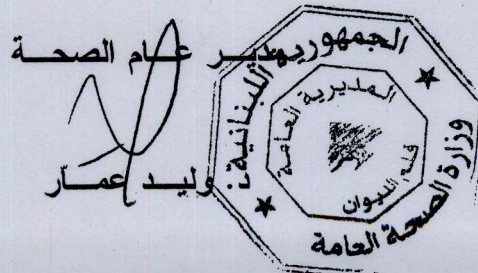 مدير عام الصحة
وليد عمار
الجمهورية اللبنانية
وزارة الصحة العامة
المديرية العامة
قلم الديوان